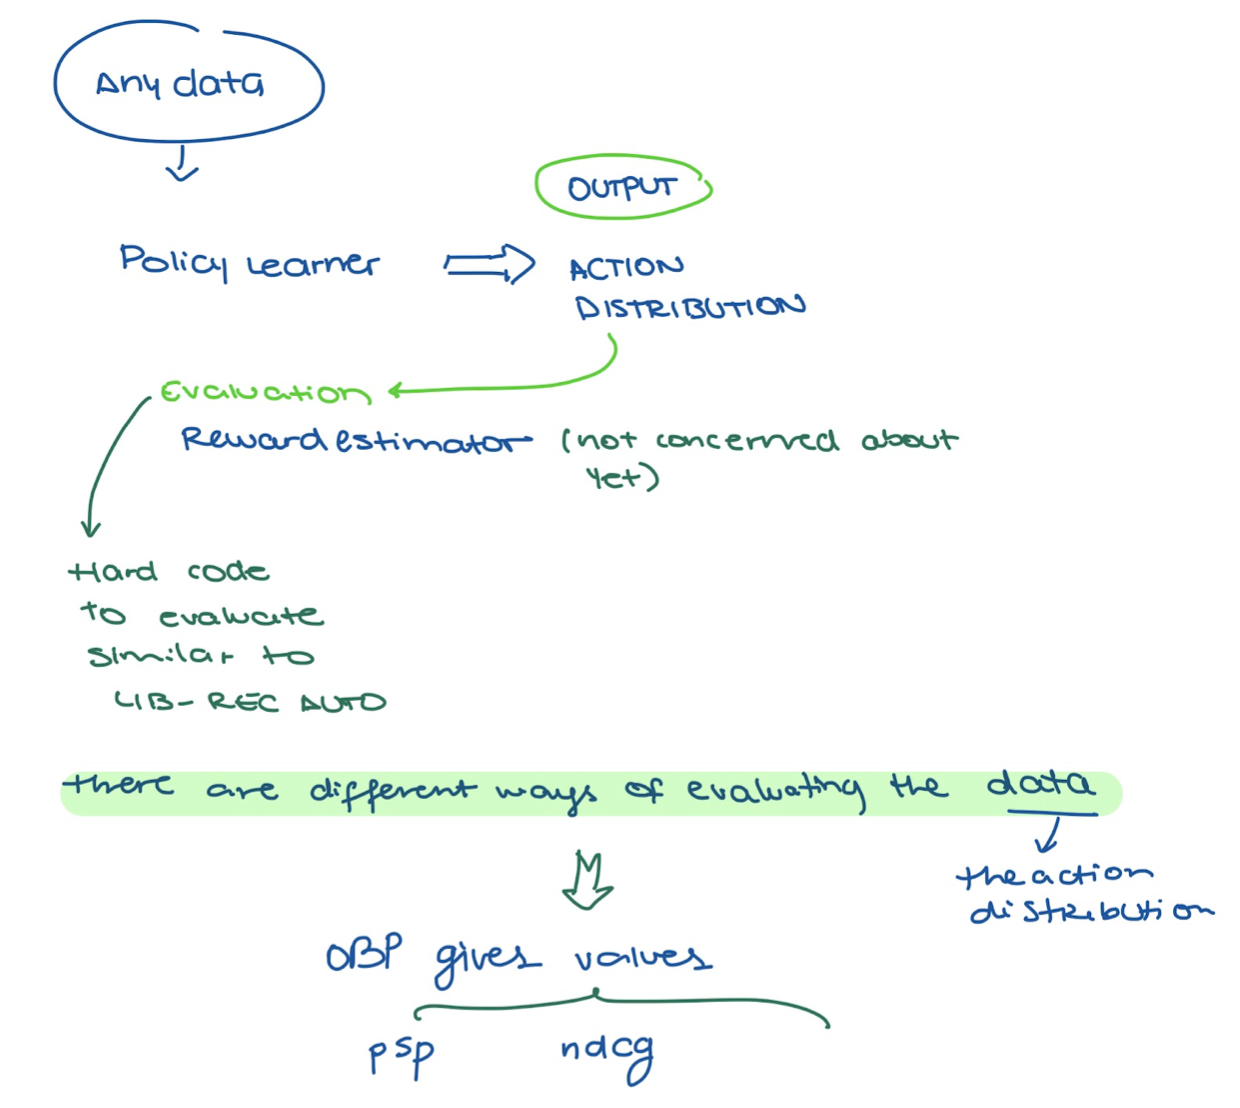 Any data
OUTPUT
Policy Learner
ACTION
DISTRIBUTION
Evaluation
Reward estimator (not concerned about
yet)
Hard code
to evaluate
similar to
LIB-REC AUTO
there are different ways of evaluating the data
the action
distribution
OBP gives values
psp ndcg